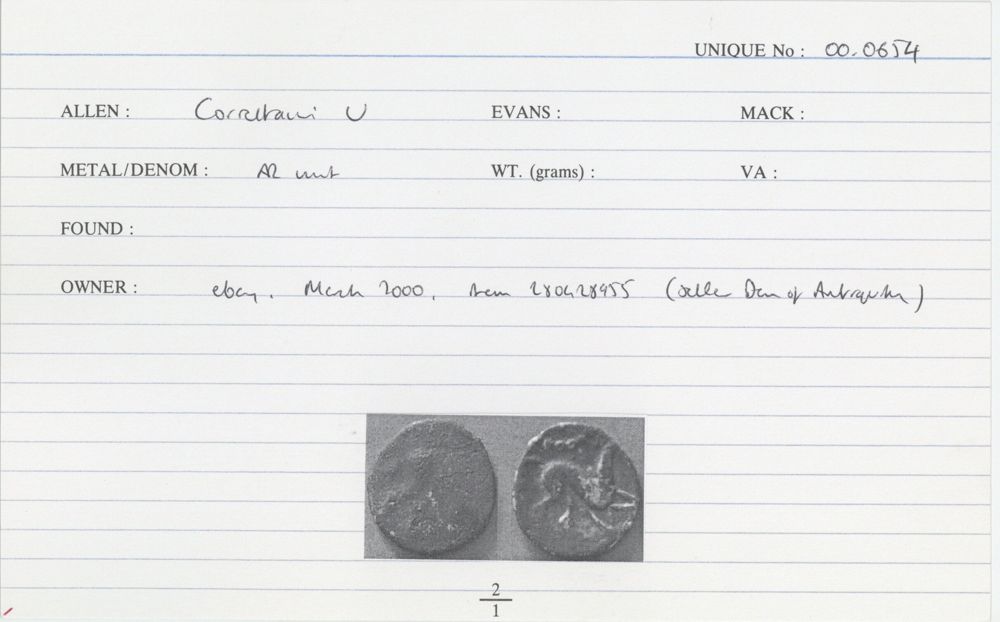 UNIQUE No : 00.0654
ALLEN : Corieltauvi U EVANS : MACK :
METAL/DENOM : AR unit WT. (grams) : VA :
FOUND :
OWNER : ebay. March 2000, item 280428955 (seller Den of Antiquity)
2
1